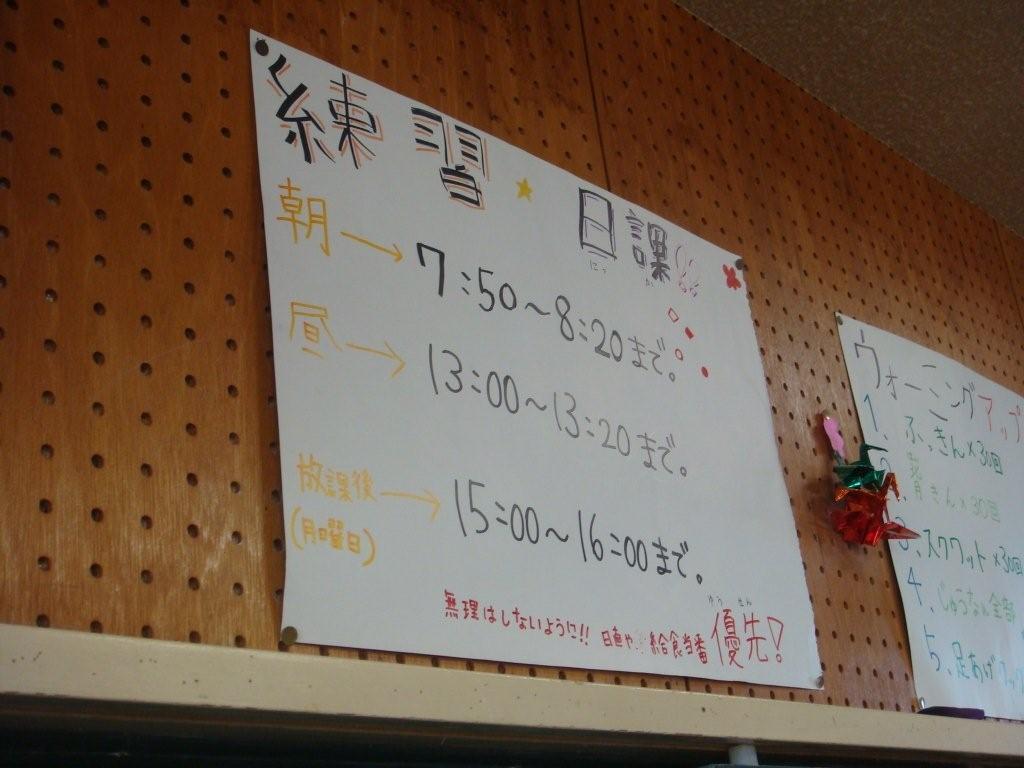 練習 日課
にっ か
朝→ 7:50～8:20まで。
昼→ 13:00～13:20まで。
放課後→ 15:00～16:00まで。
(月曜日)
ゆう せん
無理はしないように!! 日直や給食当番優先!
ウォーミングアップ
1、ふっきん×30回
2、背きん×30回
3、スクワット×30回
4、じゅうなん全部
5、足あげ